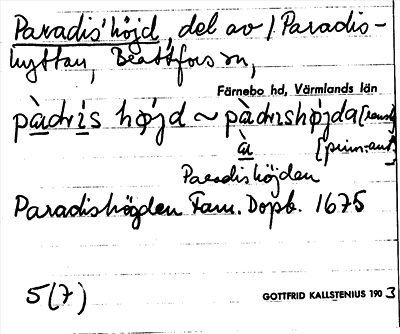 Paradis'höjd, del av / Paradis-
hyttan, Brattfors sn,
Färnebo hd, Värmlands län
pàdrìs højd ~ pàdrishøjda
[prim. ant.]
Paradishöjden
Paradishögden Fam. Dopb. 1675
5(7)
GOTTFRID KALLSTENIUS 1903